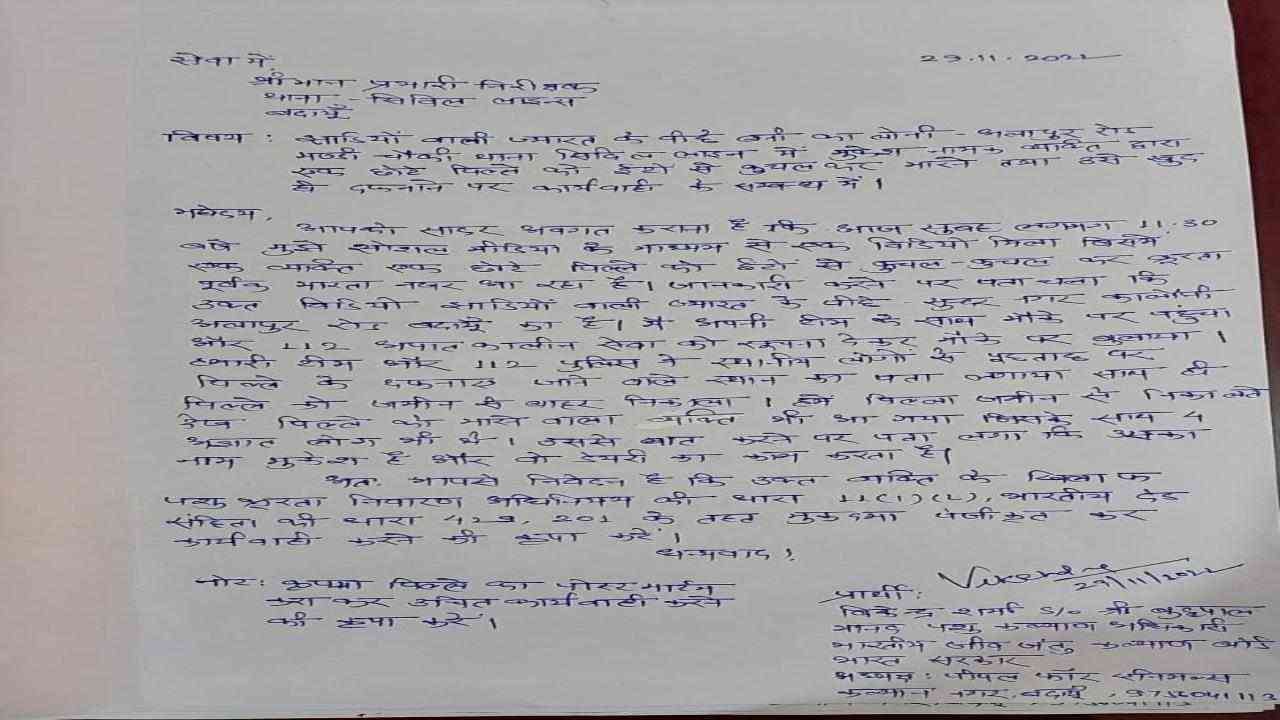 सेवा में,
29.11.2022
श्रीमान प्रभारी निरीक्षक
थाना - सिविल लाइन्स
बदायूँ
विषय : झाडियों वाली ज्यारत के पीछे बनी कालोनी - अलापुर रोड
मण्डी चौकी थाना सिविल लाइन में मुकेश नामक व्यक्ति द्वारा
एक छोटे पिल्ले को ईंटो से कुचलकर मारने तथा उसे खुद
से दफनाने पर कार्यवाही के सम्बन्ध में।
महोदय,
आपको सादर अवगत कराना है कि आज सुबह लगभग 11:30
बजे मुझे शोशल मीडिया के माध्यम से एक विडियो मिला जिसमें
एक व्यक्ति एक छोटे पिल्ले को ईंटो से कुचल-कुचल कर क्रूरता
पूर्वक मारता नजर आ रहा है। जानकारी करने पर पता चला कि
उक्त विडियो झाडियों वाली ज्यारत के पीछे नगर कालोनी
अलापुर रोड बदायूँ का है। मैं अपनी टीम के साथ मौके पर पहुंचा
और 112 अपातकालीन सेवा को सूचना देकर मौके पर बुलाया।
हमारी टीम और 112 पुलिस ने स्थानीय लोगों के पूछताछ पर
पिल्ले के दफनाए जाने वाले स्थान का पता लगाया साथ ही
पिल्ले को जमीन से बाहर निकाला। पिल्ला जमीन से निकालते
देख पिल्ले को मारने वाला व्यक्ति भी आ गया जिसके साथ 4
अज्ञात लोग भी थे। उससे बात करने पर पता लगा कि उसका
नाम मुकेश है और वो डेयरी का काम करता है।
अतः आपसे निवेदन है कि उक्त व्यक्ति के खिलाफ
पशु क्रूरता निवारण अधिनियम की धारा 11(1)(L), भारतीय दंड
संहिता की धारा 429, 201 के तहत मुकदमा पंजीकृत कर
कार्यवाही करने की कृपा करें।
धन्यवाद!
नोट: कृपया पिल्ले का पोस्टमार्टम
करा कर उचित कार्यवाही करने
की कृपा करें।
29/11/2022
प्रार्थी:
विकेन्द्र शर्मा S/o श्री
मानद पशु कल्याण अधिकारी
भारतीय जीव जंतु कल्याण बोर्ड
भारत सरकार
अध्यक्ष: पीपल फॉर एनिमल्स
कल्यान नगर, बदायूँ,